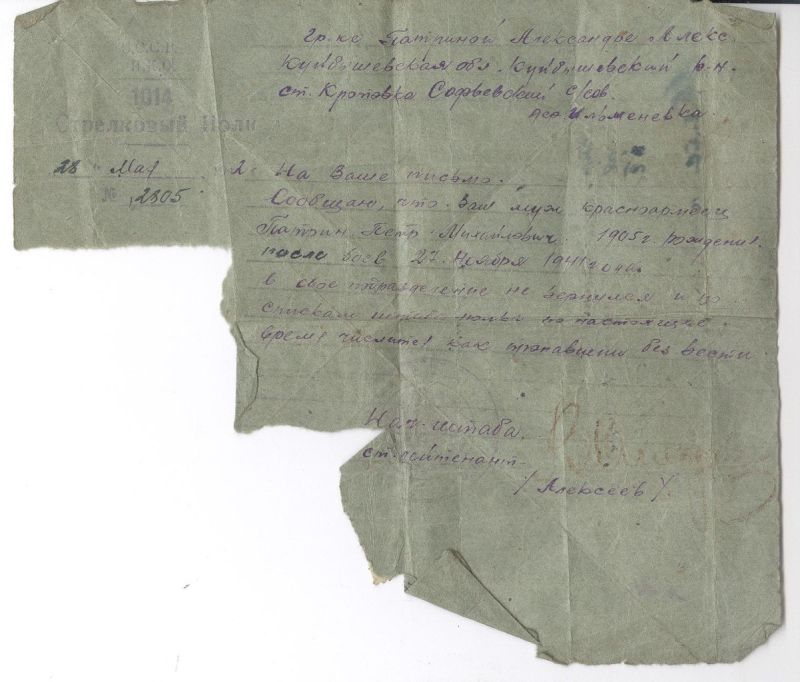 С.С.Р.
Н.К.О.
1014
Стрелковый Полк
28 " Мая 2
№ 2305
Гр-ке Патриной Александре Алекс.
Куйбышевская обл. Куйбышевский р-н.
ст. Кротовка Софьевский с/сов.
Ильменевка
На Ваше письмо.
Сообщаю, что Ваш муж красноармеец
Патрин Петр Михайлович 1905 г. рождения
после боев 27 Ноября 1941 года
в свое подразделение не вернулся и по
спискам полка по настоящие
время числится как пропавший без вести.
Нач. штаба
ст. лейтенант
/ Алексеев /